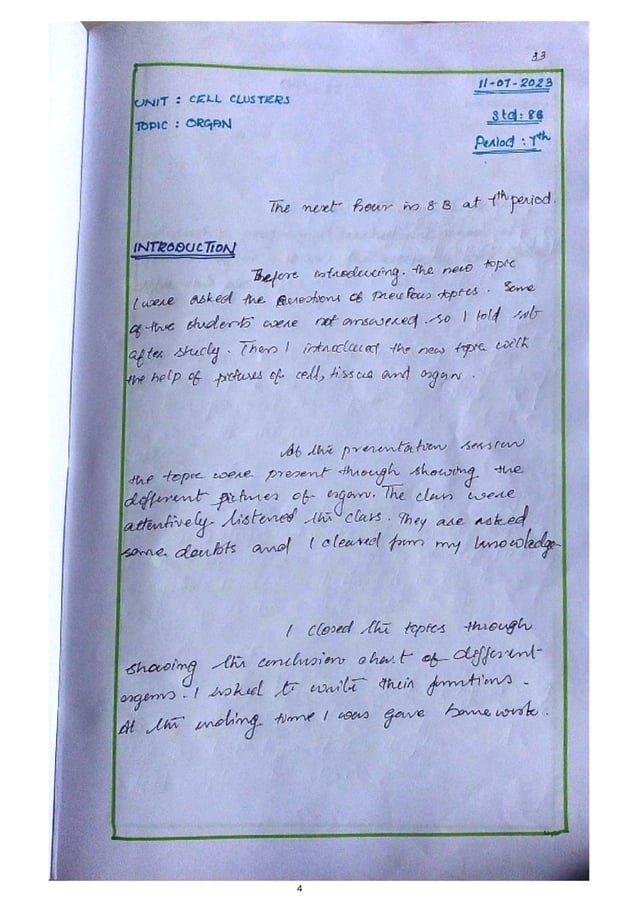 33
11-07-2023
UNIT : CELL CLUSTERS
Std: 8B
TOPIC : ORGAN
Period : 7th
The next hour is 8 B at 7th period.
INTRODUCTION
Before introducing. the new topic
I were asked the Questions of previous topics. Some
of the students were not answered. so I told
after study. Then I introduced the new topic with
the help of pictures of cell, tissue and organ.
At the presentation session
the topic were present through showing the
different pictures of organ. The class were
attentively listened the class. They are asked
some doubts and I cleared from my knowledge
I closed the topics through
showing the conclusion chart of different
organs. I asked to write their functions.
At the ending time I was gave home work.
4